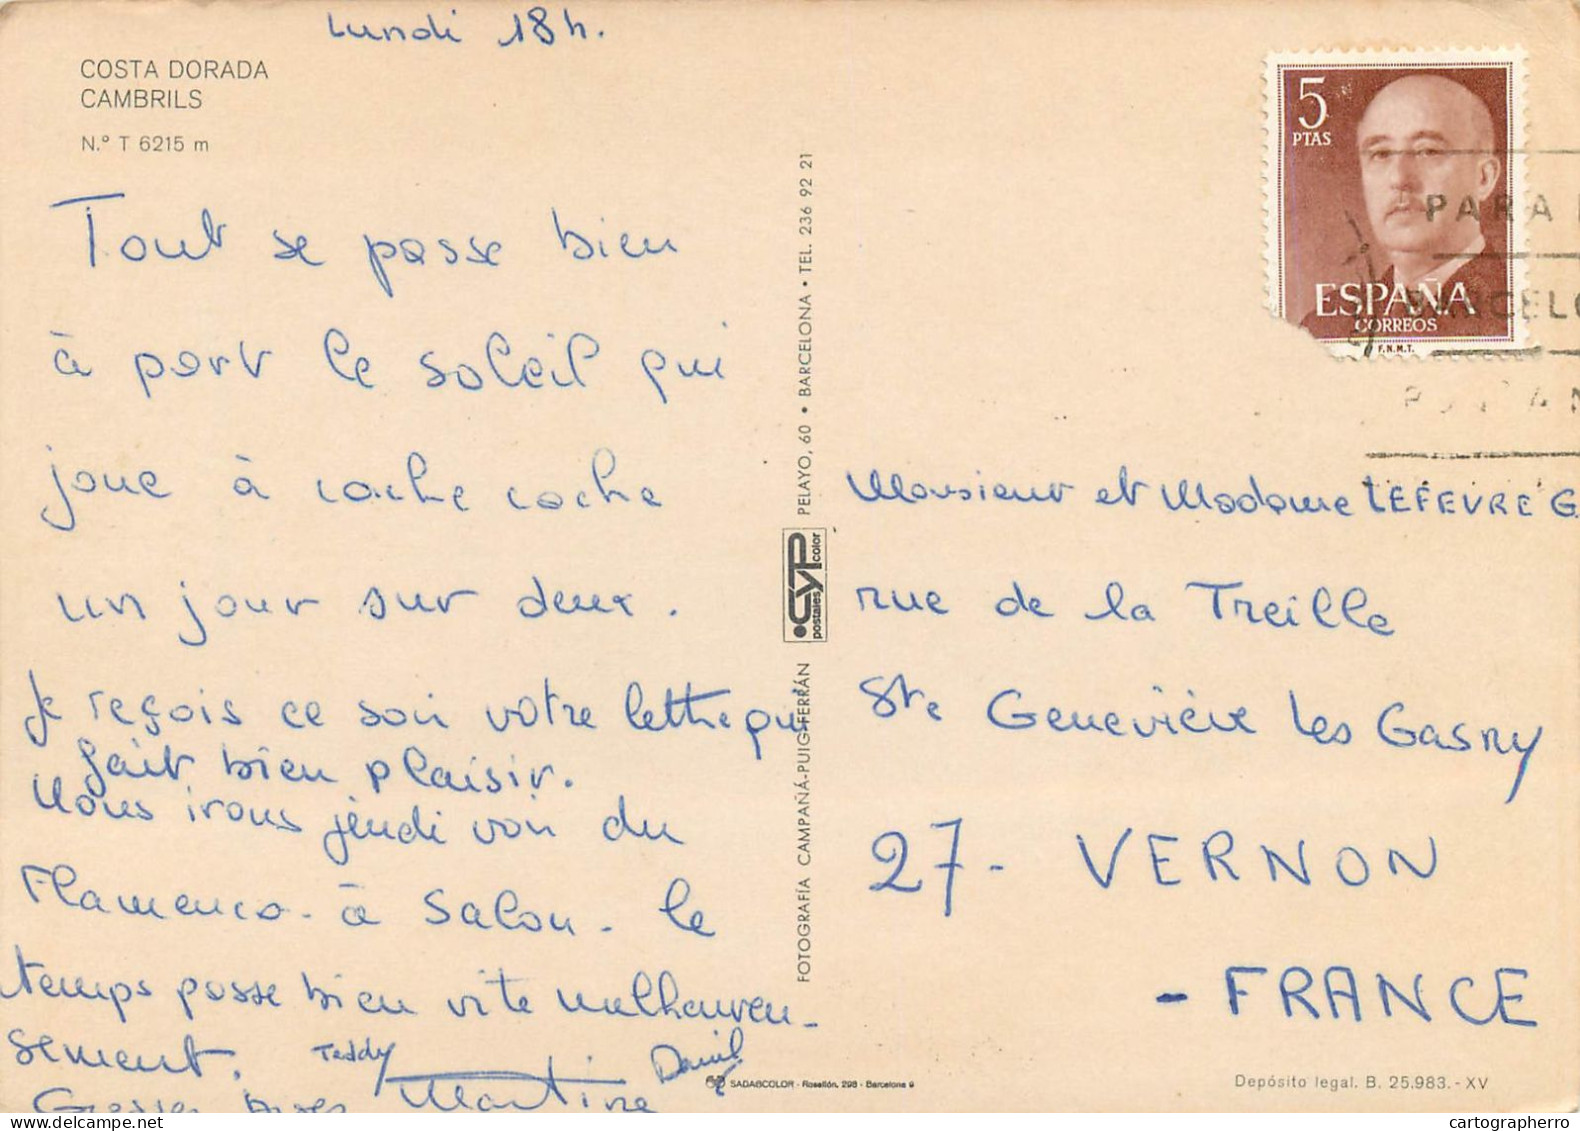 Lundi 18h.
COSTA DORADA
CAMBRILS
N.º T 6215 m
Tout se passe bien
à part le soleil qui
joue à cache cache
un jour sur deux.
Je reçois ce soir votre lettre qui
fait bien plaisir.
Nous irons jeudi voir du
Flamenco - à Salou - le
temps passe bien vite malheureu-
sement.
Teddy
Daniel
Grosses bises Martine
FOTOGRAFÍA CAMPAÑÁ-PUIG-FERRÁN
CYP color
postales
PELAYO, 60 • BARCELONA • TEL. 236 92 21
SADAGCOLOR - Rosellón, 298 - Barcelona 9
5
PTAS
ESPAÑA
CORREOS
F.N.M.T.
PARA
BARCELO
Monsieur et Madame LEFEVRE G
rue de la Treille
Ste Geneviève les Gasny
27 - VERNON
- FRANCE
Depósito legal. B. 25.983. - XV
cartographerro